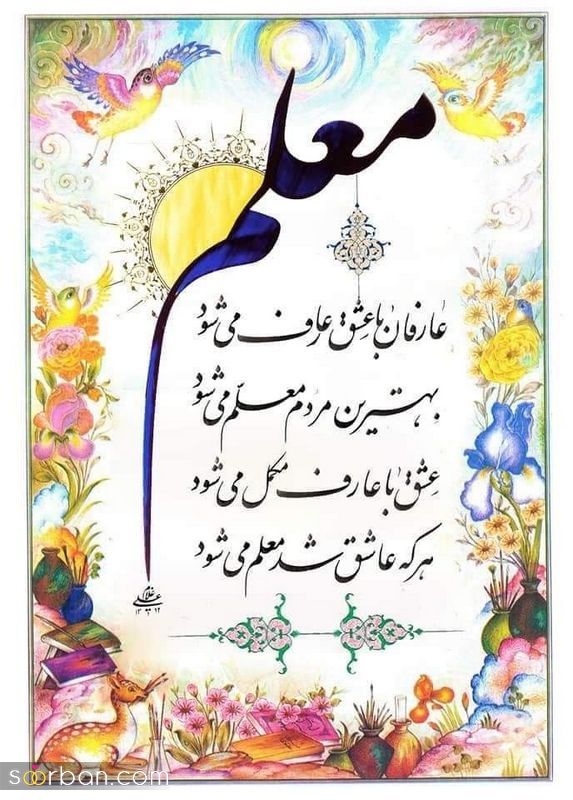 معلم
عارفان با عشق عارف می شود
بهترین مردم معلّم می شود
عشق با عارف مکمل می شود
هر که عاشق شد معلم می شود
soorban.com